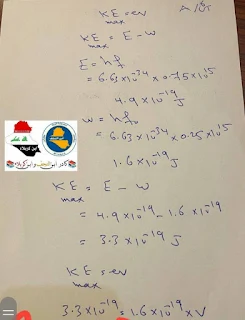 KE max = ev
A/Si
KE max = E - w
E = hf
= 6.63 × 10^-34 × 0.75 × 10^15
4.9 × 10^-19 J
w = hf₀
= 6.63 × 10^-34 × 0.25 × 10^15
1.6 × 10^-19 J
KE max = E - w
= 4.9 × 10^-19 - 1.6 × 10^-19
= 3.3 × 10^-19 J
KE max = ev
3.3 × 10^-19 = 1.6 × 10^-19 × V